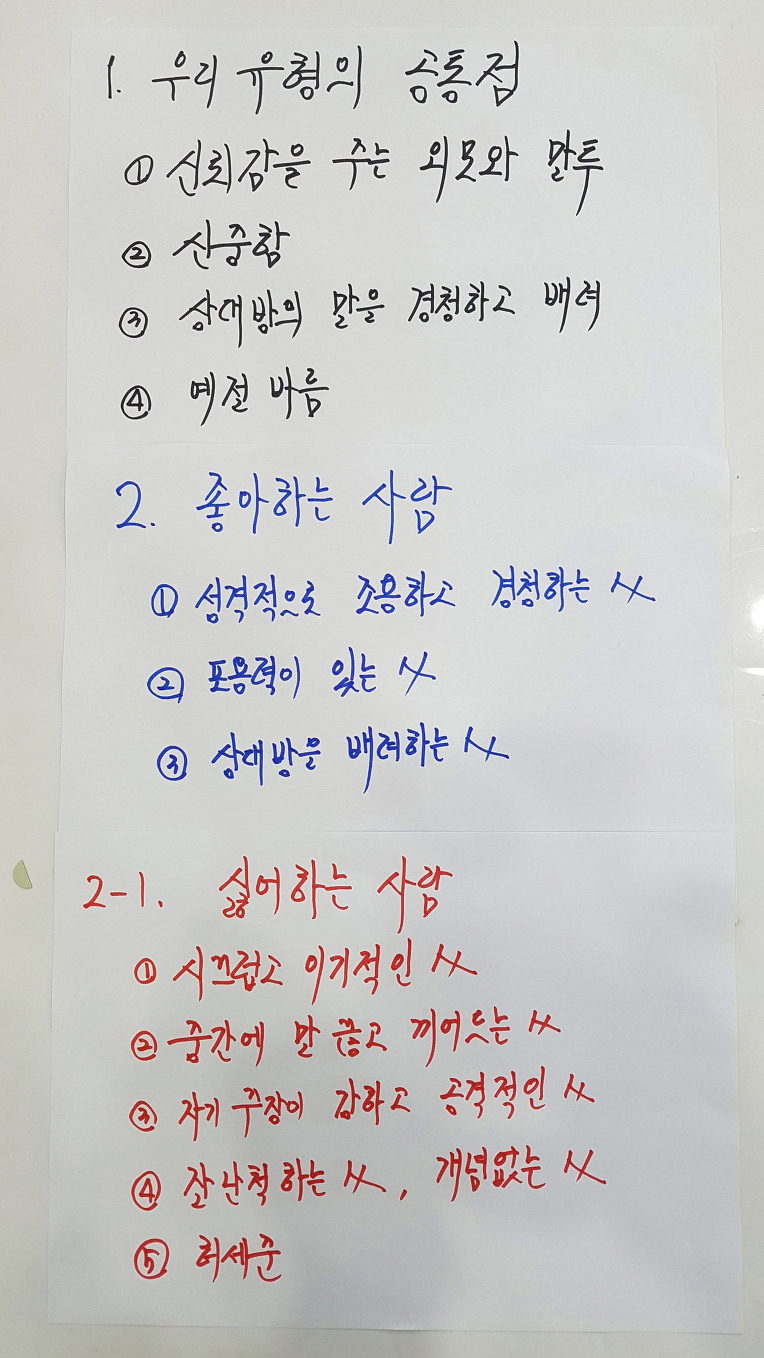 1. 우리 유형의 공통점
① 신뢰감을 주는 외모와 말투
② 신중함
③ 상대방의 말을 경청하고 배려
④ 예절 바름
2. 좋아하는 사람
① 성격적으로 조용하고 경청하는 人人
② 포용력이 있는 人
③ 상대방을 배려하는 人人
2-1. 싫어하는 사람
① 시끄럽고 이기적인 人人
② 중간에 말 끊고 끼어드는 人人
③ 자기 주장이 강하고 공격적인 人人
④ 잘난척하는 人人, 개념없는 人人
⑤ 허세준